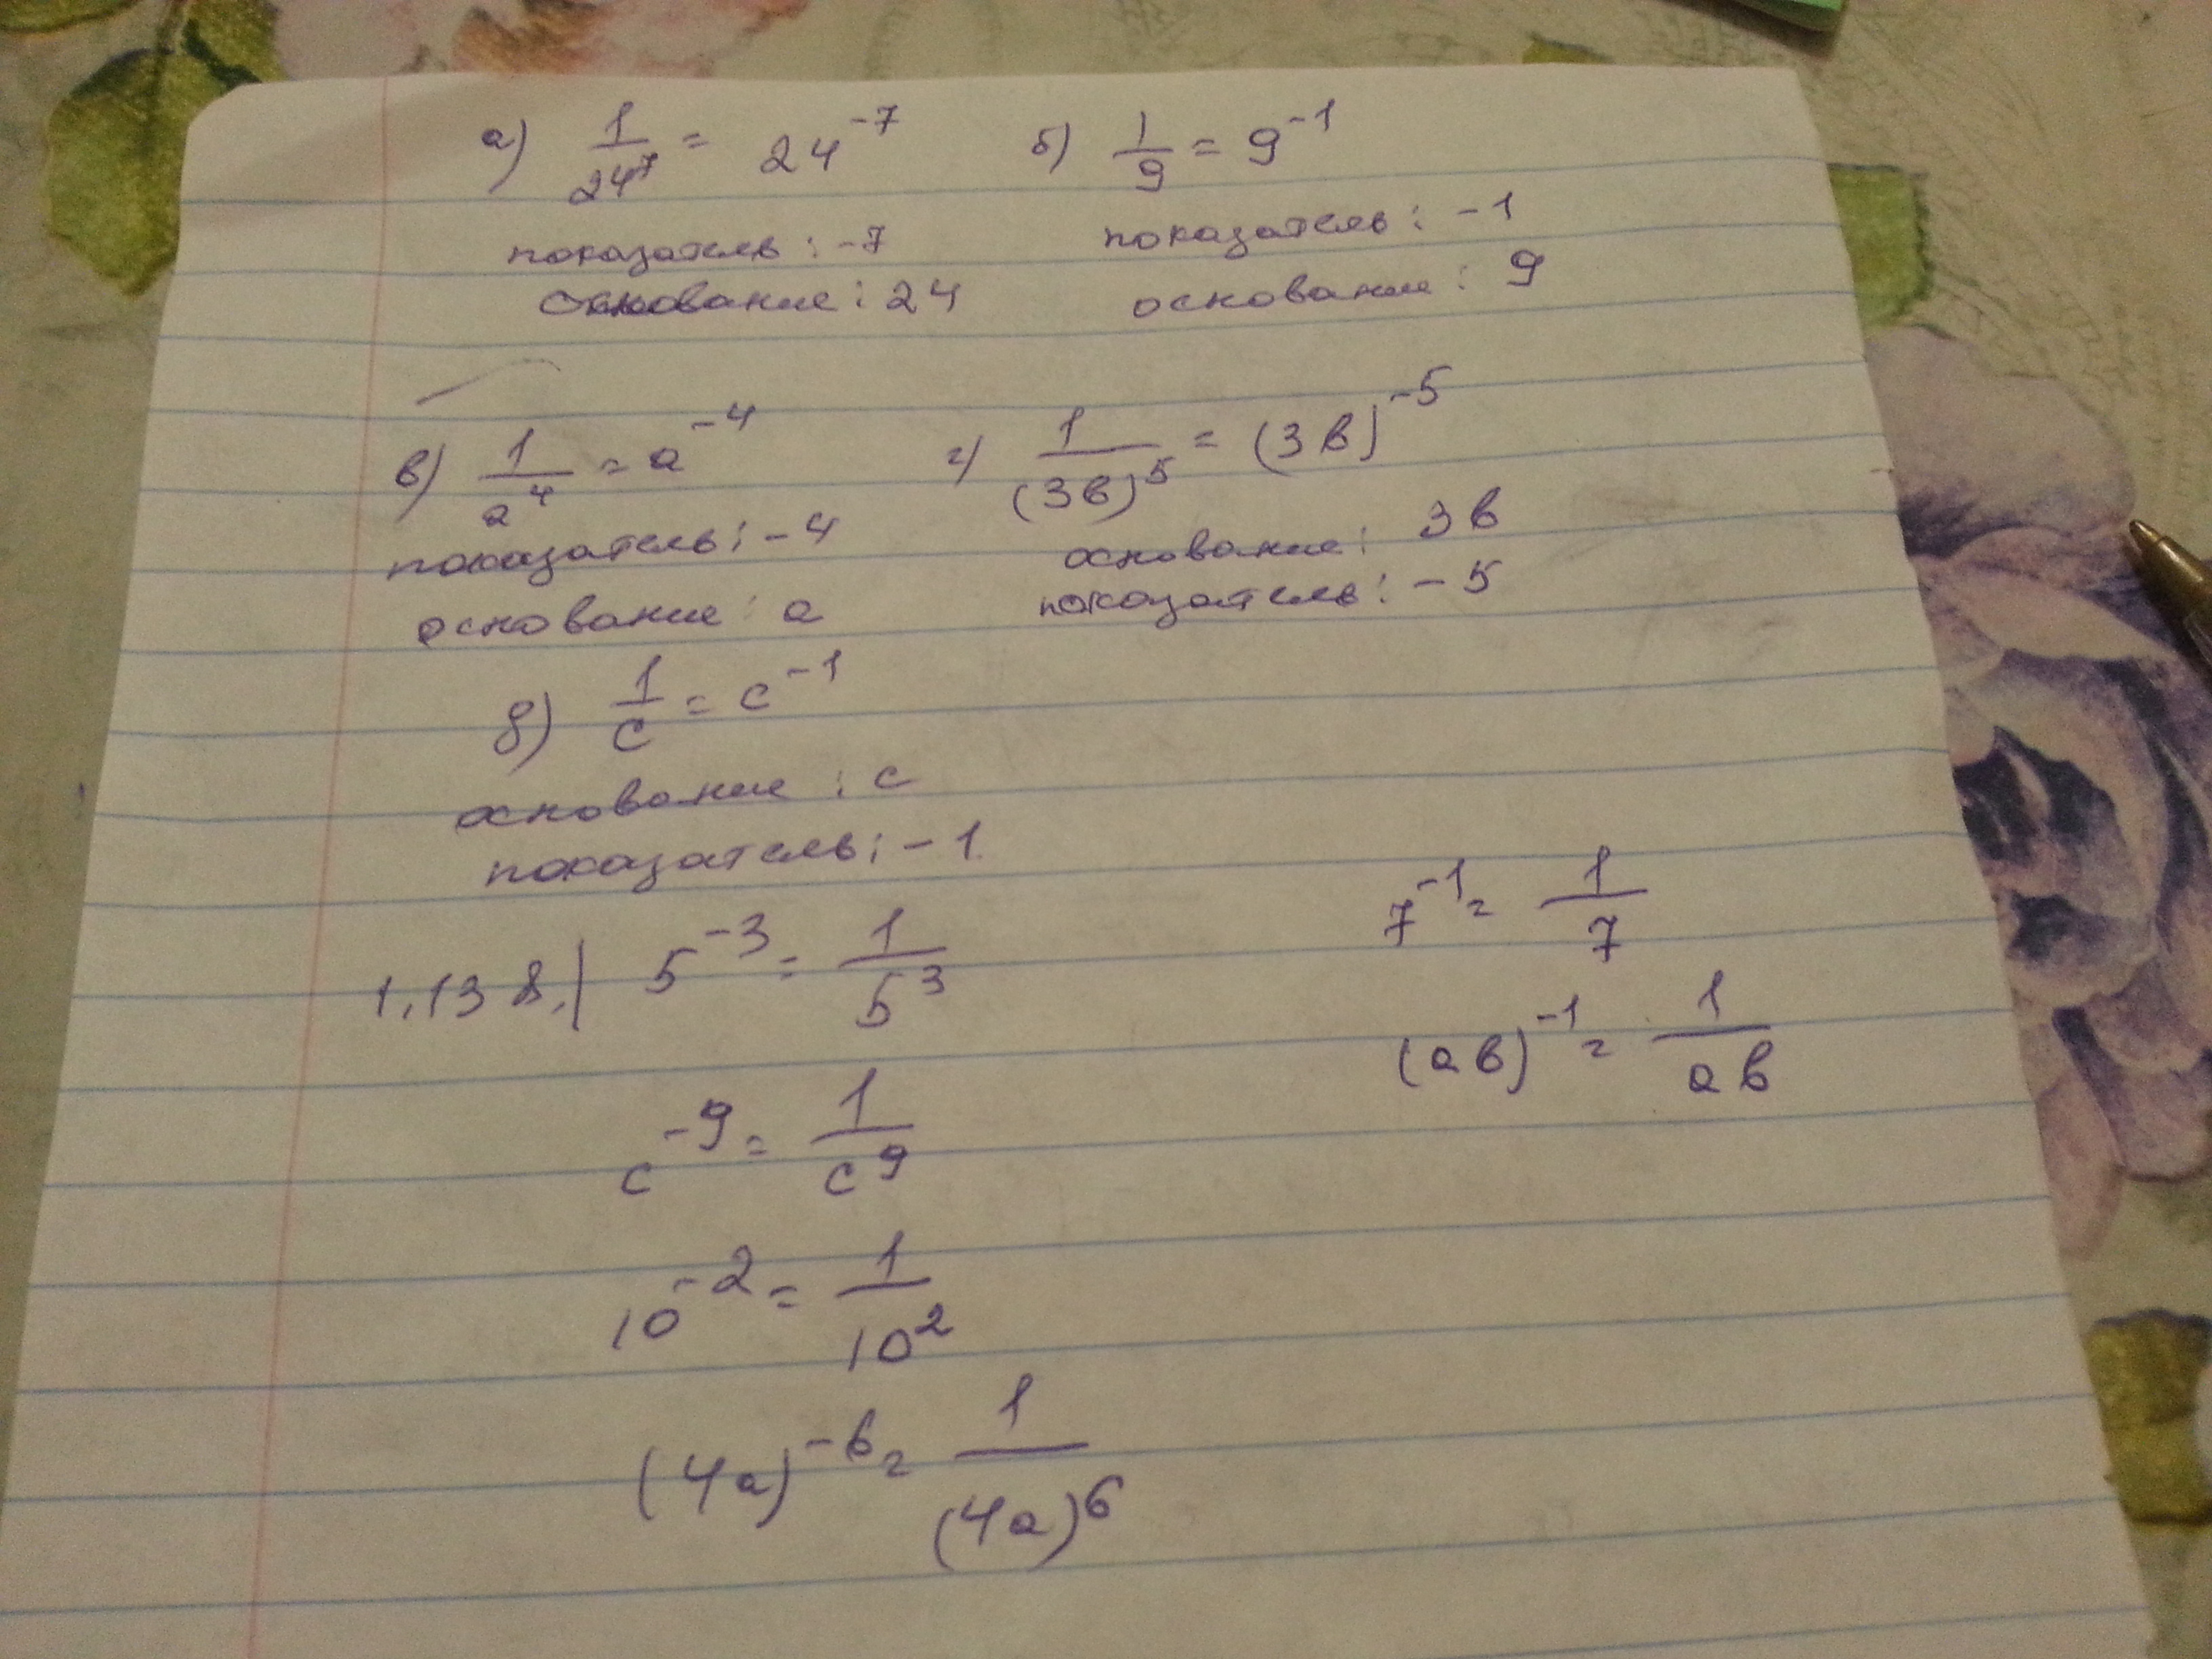 а) 1/24^7 = 24^-7   б) 1/9 = 9^-1
показатель: -7   показатель: -1
основание: 24   основание: 9
в) 1/2^4 = a^-4   г) 1/(3в)^5 = (3в)^-5
показатель: -4   основание: 3в
основание: а   показатель: -5
д) 1/c = c^-1
основание: c
показатель: -1
1.138.) 5^-3 = 1/5^3   7^-1 = 1/7
c^-9 = 1/c^9   (ав)^-1 = 1/ав
10^-2 = 1/10^2
(4a)^-6 = 1/(4a)^6